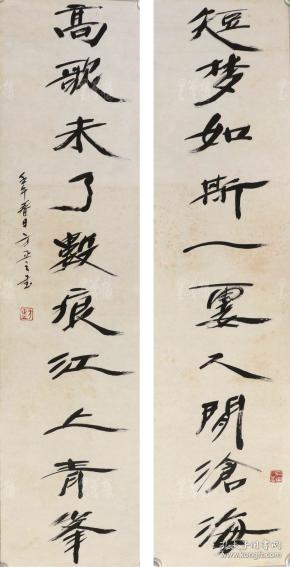 短梦如斯一霎人間滄海
高歌未了數痕江上青峯
壬午春日